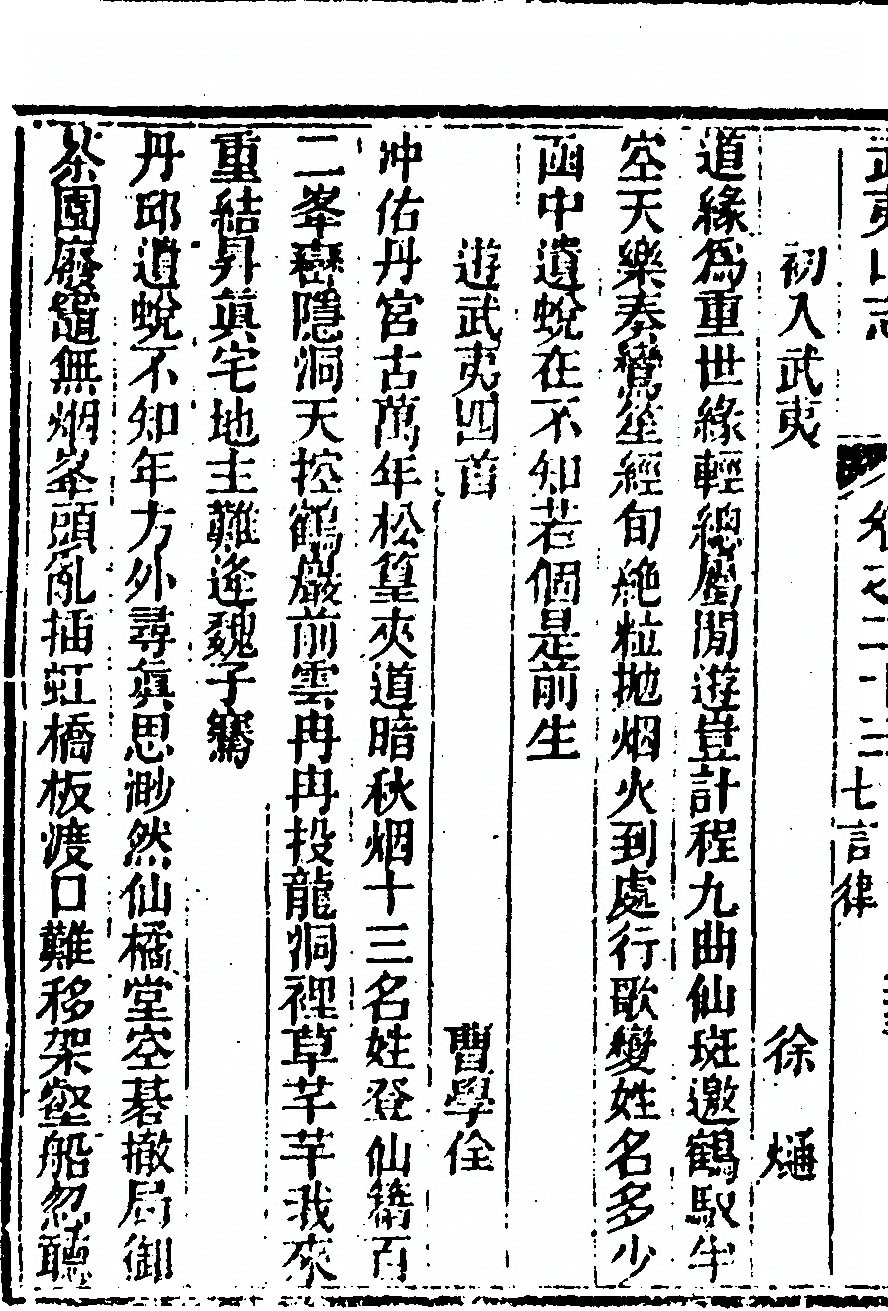 武夷山志　卷之二十二七言律
初入武夷　徐𤊹
道緣為重世緣輕總屬閒遊豈計程九曲仙班邀鶴馭半
空天樂奏鸞笙經旬絶粒抛烟火到處行歌變姓名多少
函中遺蛻在不知若個是前生
遊武夷四首　曹學佺
冲佑丹宮古萬年松篁夾道暗秋烟十三名姓登仙籍百
二峯巒隱洞天控鶴巖前雲冉冉投龍洞裡草芊芊我來
重結昇眞宅地主難逢魏子騫
丹邱遺蛻不知年方外尋眞思渺然仙橘堂空碁撤局御
茶園廢竈無烟峯頭亂插虹橋板渡口難移架壑船忽聽